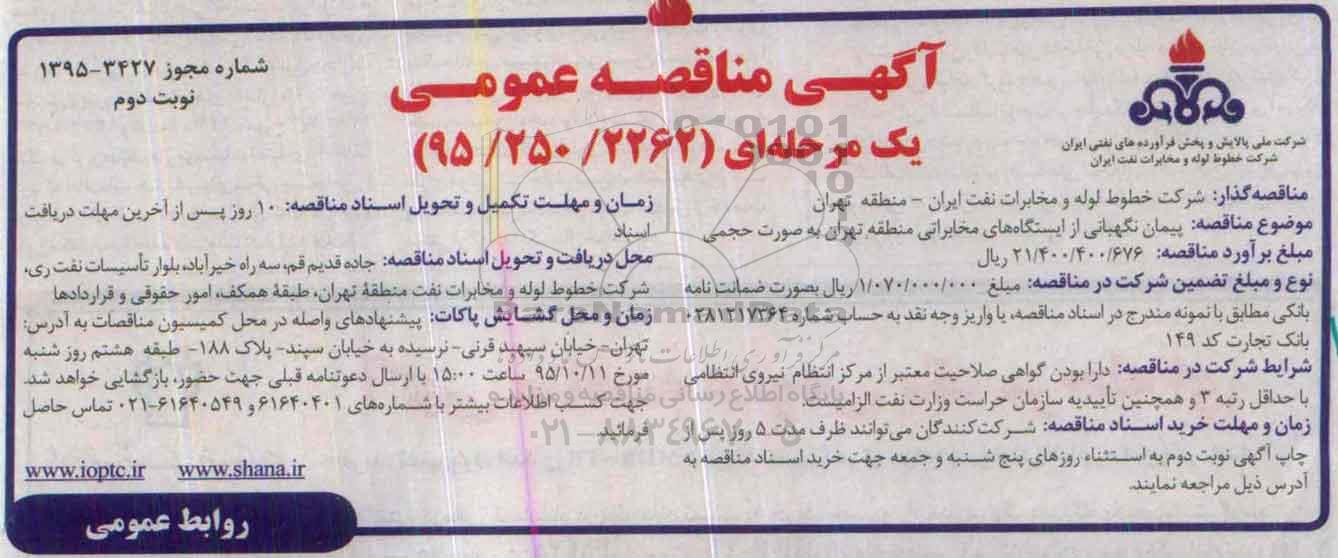 شرکت ملی پالایش و پخش فرآورده های نفتی ایران
شرکت خطوط لوله و مخابرات نفت ایران
آگهی مناقصه عمومی
یک مرحله‌ای (۲۲۶۲/ ۲۵۰/ ۹۵)
شماره مجوز ۳۴۲۷-۱۳۹۵
نوبت دوم
مناقصه‌گذار: شرکت خطوط لوله و مخابرات نفت ایران - منطقه تهران
موضوع مناقصه: پیمان نگهبانی از ایستگاه‌های مخابراتی منطقه تهران به صورت حجمی
مبلغ برآورد مناقصه: ۲۱/۴۰۰/۴۰۰/۶۷۶ ریال
نوع و مبلغ تضمین شرکت در مناقصه: مبلغ ۱/۰۷۰/۰۰۰/۰۰۰ ریال بصورت ضمانت نامه
بانکی مطابق با نمونه مندرج در اسناد مناقصه، یا واریز وجه نقد به حساب شماره ۰۲۸۱۲۱۷۳۶۴
بانک تجارت کد ۱۴۹
شرایط شرکت در مناقصه: دارا بودن گواهی صلاحیت معتبر از مرکز انتظام نیروی انتظامی
با حداقل رتبه ۳ و همچنین تأییدیه سازمان حراست وزارت نفت الزامیست.
زمان و مهلت خرید اسناد مناقصه: شرکت‌کنندگان می‌توانند ظرف مدت ۵ روز پس از
چاپ آگهی نوبت دوم به استثناء روزهای پنج شنبه و جمعه جهت خرید اسناد مناقصه به
آدرس ذیل مراجعه نمایند.
زمان و مهلت تکمیل و تحویل اسناد مناقصه: ۱۰ روز پس از آخرین مهلت دریافت
اسناد
محل دریافت و تحویل اسناد مناقصه: جاده قدیم قم، سه راه خیرآباد، بلوار تأسیسات نفت ری،
شرکت خطوط لوله و مخابرات نفت منطقهٔ تهران، طبقهٔ همکف، امور حقوقی و قراردادها
زمان و محل گشایش پاکات: پیشنهادهای واصله در محل کمیسیون مناقصات به آدرس:
تهران- خیابان سپهبد قرنی- نرسیده به خیابان سپند- پلاک ۱۸۸- طبقه هشتم روز شنبه
مورخ ۹۵/۱۰/۱۱ ساعت ۱۵:۰۰ با ارسال دعوتنامه قبلی جهت حضور، بازگشایی خواهد شد.
جهت کسب اطلاعات بیشتر با شماره‌های ۶۱۶۴۰۴۰۱ و ۶۱۶۴۰۵۴۹-۰۲۱ تماس حاصل
فرمائید
www.shana.ir www.ioptc.ir
روابط عمومی
پایگاه اطلاع رسانی مناقصه و مزایده
۰۲۱-۸۸۳۴۹۶۷۰-۵